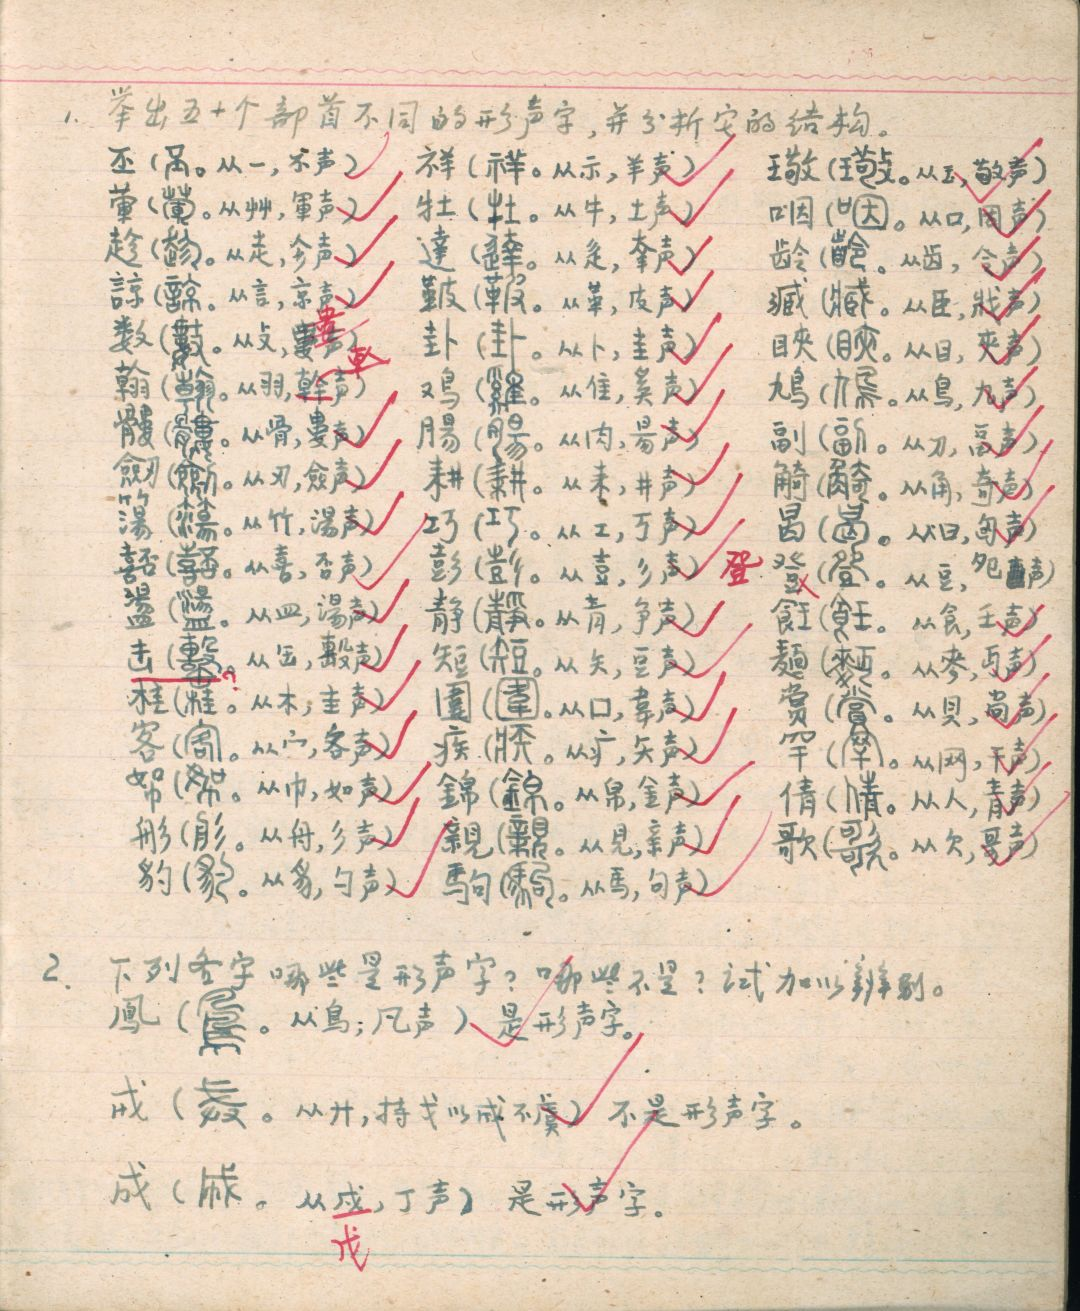 1. 举出五十个部首不同的形声字,并分析它的结构。
丕(。从一,不声) 祥(祥。从示,羊声) 璥(璥。从玉,敬声)
葷(葷。从艸,軍声) 牡(牡。从牛,土声) 咽(咽。从口,因声)
趁(趁。从走,㐱声) 達(達。从辵,羍声) 齡(齡。从齿,令声)
諒(諒。从言,京声) 鞁(鞁。从革,皮声) 臧(臧。从臣,戕声)
数(數。从攴,婁声) 婁 卦(卦。从卜,圭声) 䀹(䀹。从目,夾声)
翰(翰。从羽,幹声) 倝 鸡(雞。从隹,奚声) 鳩(鳩。从鳥,九声)
髏(髏。从骨,婁声) 腸(腸。从肉,昜声) 副(副。从刀,畐声)
劒(劒。从刃,僉声) 耕(耕。从耒,井声) 觭(觭。从角,奇声)
簜(簜。从竹,湯声) 巧(巧。从工,丂声) 曷(曷。从曰,匃声)
嚭(嚭。从喜,否声) 彭(彭。从壴,彡声) 登 豋(豋。从豆,声)
盪(盪。从皿,湯声) 静(靜。从青,争声) 飪(飪。从食,壬声)
击(。从缶,毄声) ? 短(短。从矢,豆声) 麵(麪。从麥,丏声)
桂(桂。从木,圭声) 圍(圍。从口,韋声) 赏(賞。从貝,尚声)
客(客。从宀,各声) 疾(疾。从疒,矢声) 罕(罕。从网,干声)
帤(帤。从巾,如声) 錦(錦。从帛,金声) 倩(倩。从人,青声)
彤(彤。从舟,彡声) 親(親。从見,亲声) 歌(歌。从欠,哥声)
豹(豹。从豸,勺声) 駒(駒。从馬,句声)
2. 下列各字哪些是形声字?哪些不是?试加以辨别。
鳳(鳳。从鳥;凡声) 是形声字。
戒(戒。从廾,持戈以戒不虞) 不是形声字。
成(成。从戍,丁声) 是形声字。
戊